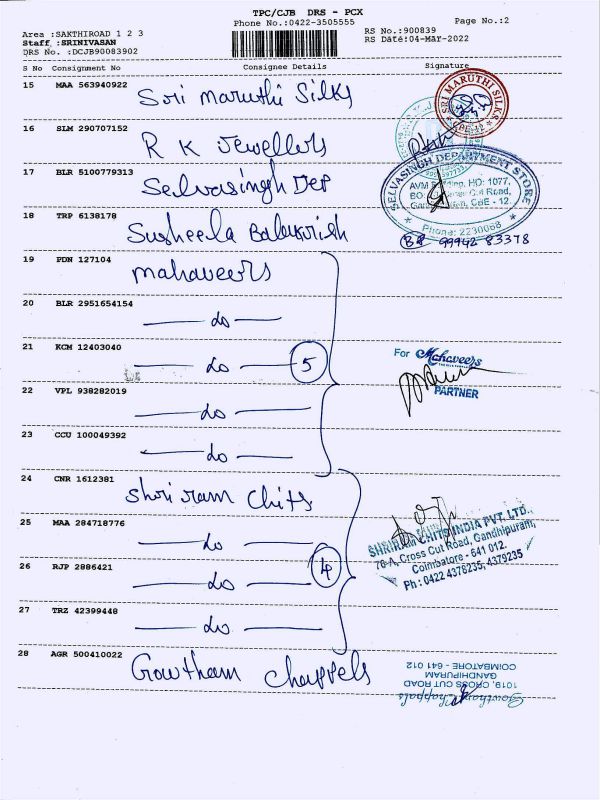 TPC/CJB DRS - PCX
Phone No.:0422-3505555
Page No.:2
Area :SAKTHIROAD 1 2 3
Staff :SRINIVASAN
DRS No. :DCJB90083902
RS No.:900839
RS Date:04-Mar-2022
S No Consignment No Consignee Details Signature
15 MAA 563940922 Sri Maruthi Silks
SRI MARUTHI SILKS
16 SLM 290707152 R K Jewellers
17 BLR 5100779313 Selvasingh Dep
SELVASINGH DEPARTMENT STORE
HO: 1077,
Cut Road,
CBE - 12.
Phone: 2230068
18 TRP 6138178 Susheela Balukrish
99942 83378
19 PDN 127104 Mahaveers
20 BLR 2951654154 — do —
21 KCM 12403040 — do — 5
For Mahaveers
PARTNER
22 VPL 938282019 — do —
23 CCU 100049392 — do —
24 CNR 1612381 Shriram Chits
25 MAA 284718776 — do —
SHRIRAM CHITS INDIA PVT. LTD.,
76-A, Cross Cut Road, Gandhipuram,
Coimbatore - 641 012.
Ph : 0422 4376235, 4379235
26 RJP 2886421 — do — 4
27 TRZ 42399448 — do —
28 AGR 500410022 Gowtham Chappels
Gowtham Chappals
1019, CROSS CUT ROAD
GANDHIPURAM
COIMBATORE - 641 012